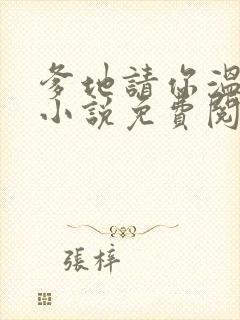 爹地請你溫
小說免費閱
張梓